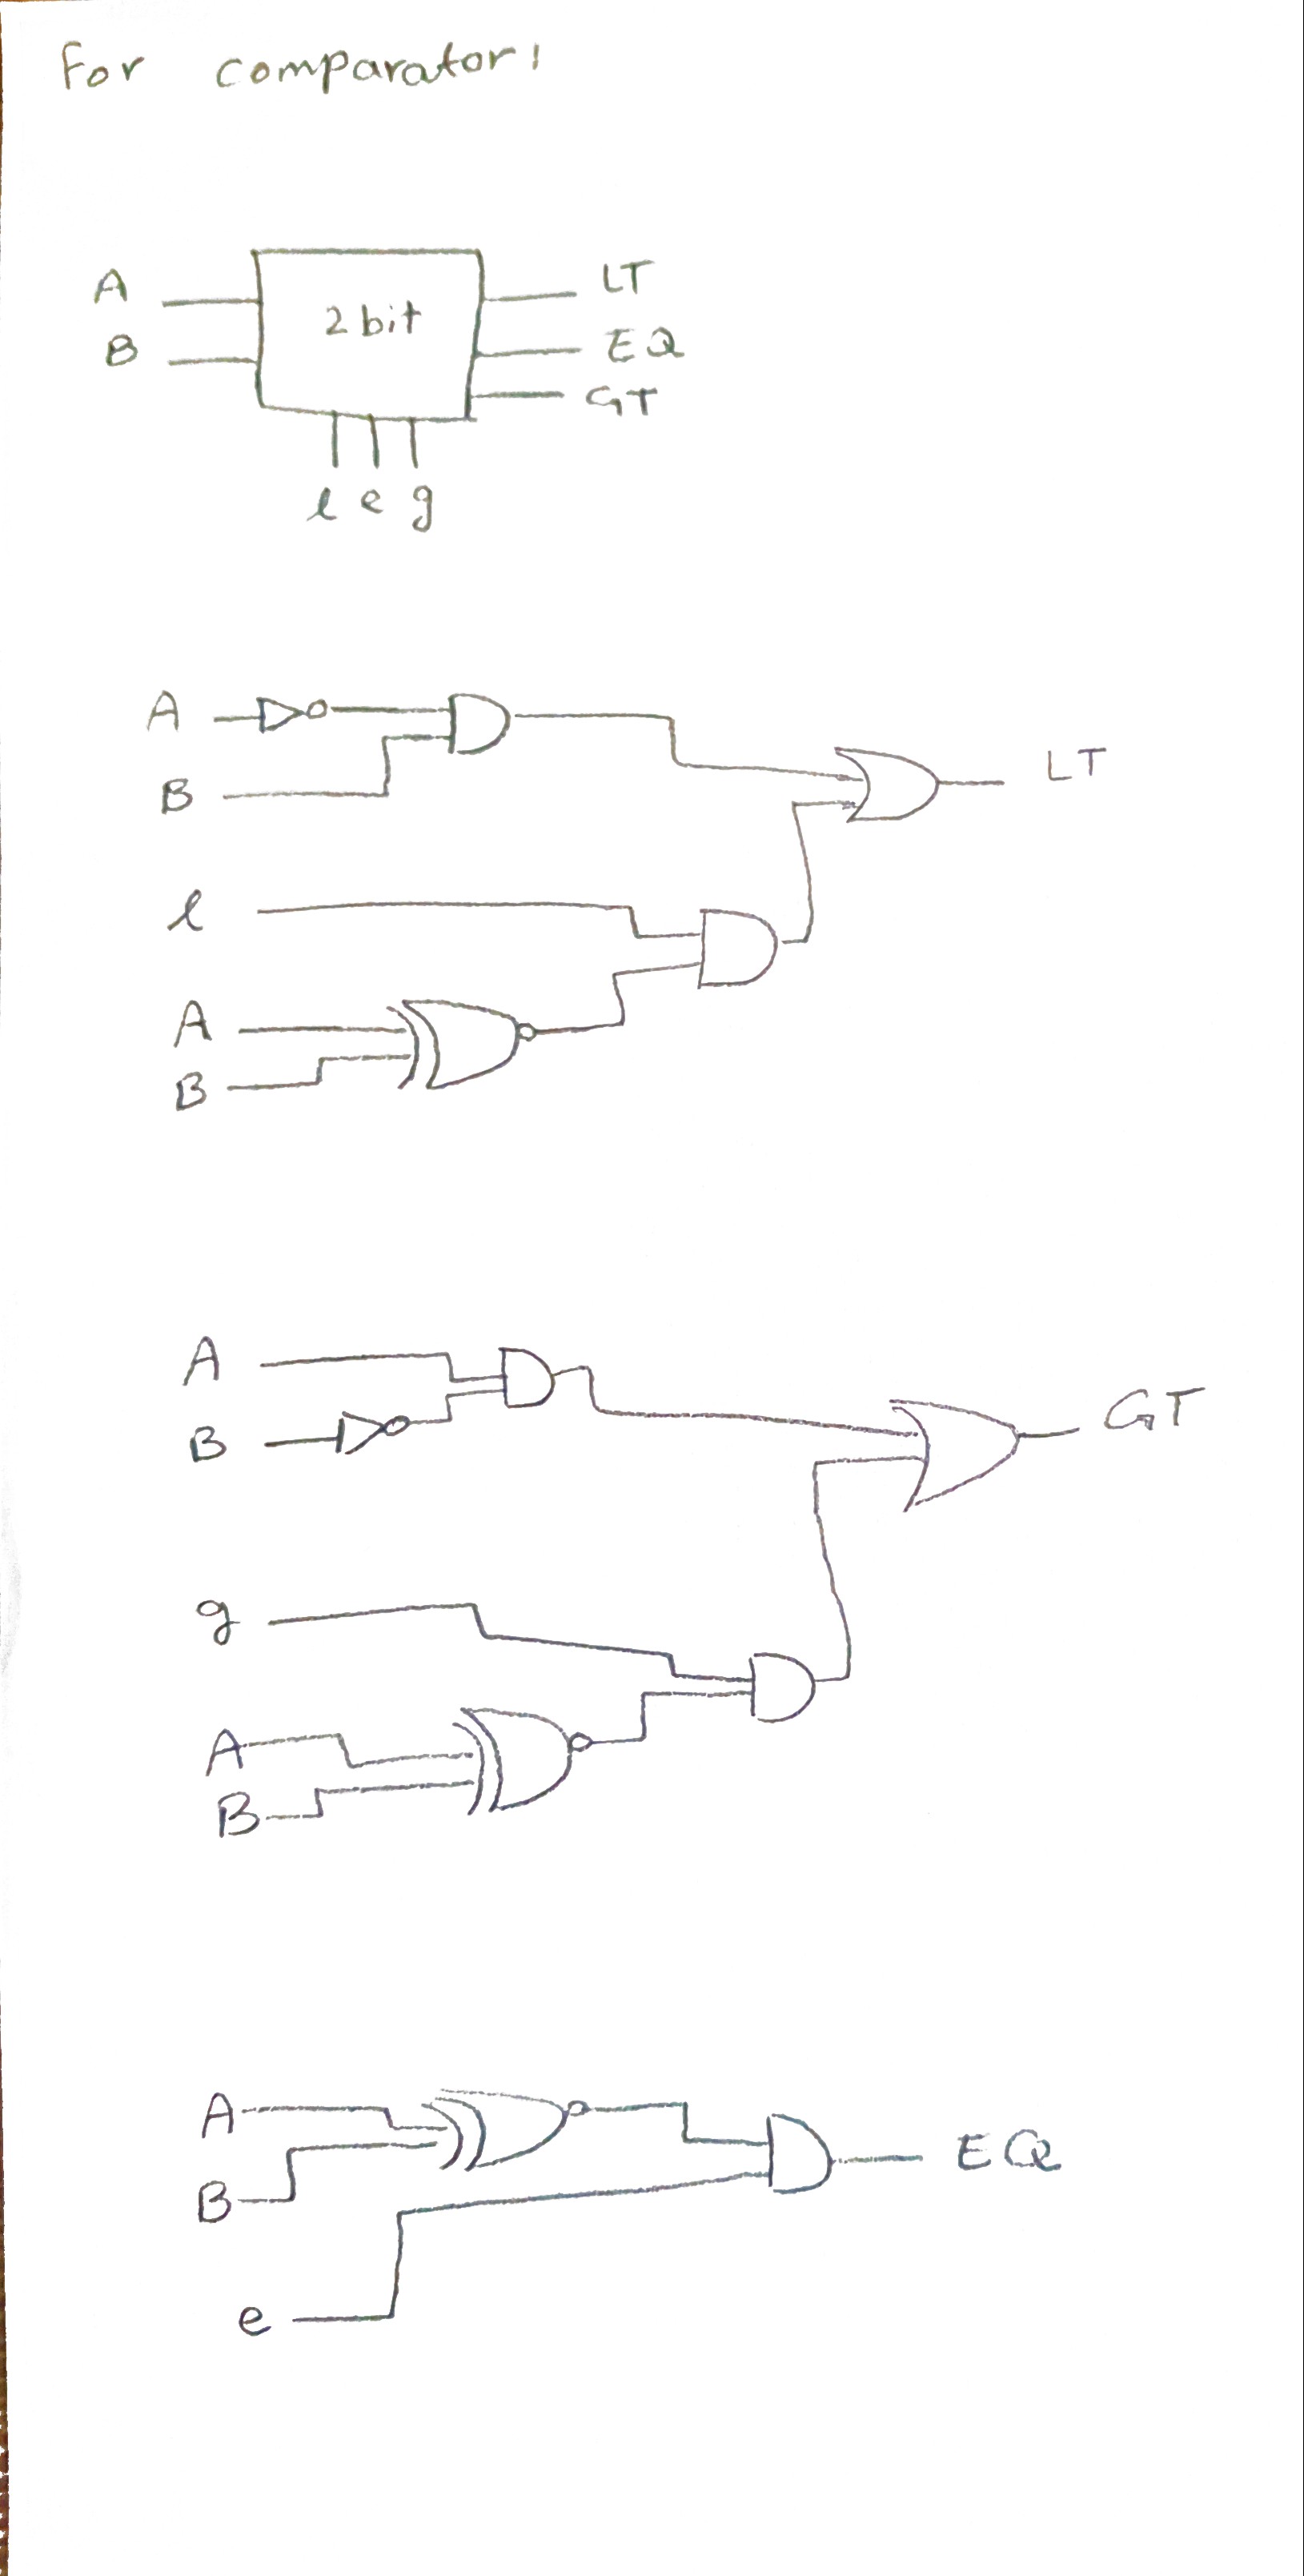 For comparator:
A
B
2 bit
LT
EQ
GT
l e g
A
B
LT
l
A
B
A
B
GT
g
A
B
A
B
EQ
e